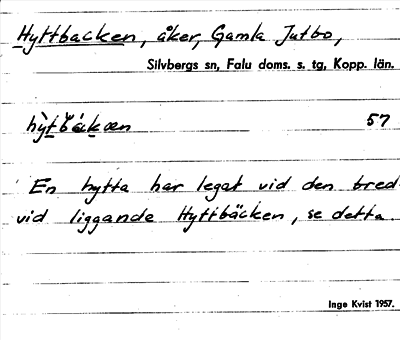 Hyttbacken, åker, Gamla Jutbo,
Silvbergs sn, Falu doms. s. tg, Kopp. län.
hy̆tbákæn 57
En hytta har legat vid den bred-
vid liggande Hyttbäcken, se detta.
Inge Kvist 1957.